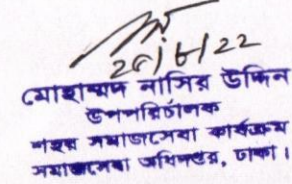 26/6/22
মোহাম্মদ নাসির উদ্দিন
উপপরিচালক
শহর সমাজসেবা কার্যক্রম
সমাজসেবা অধিদপ্তর, ঢাকা।